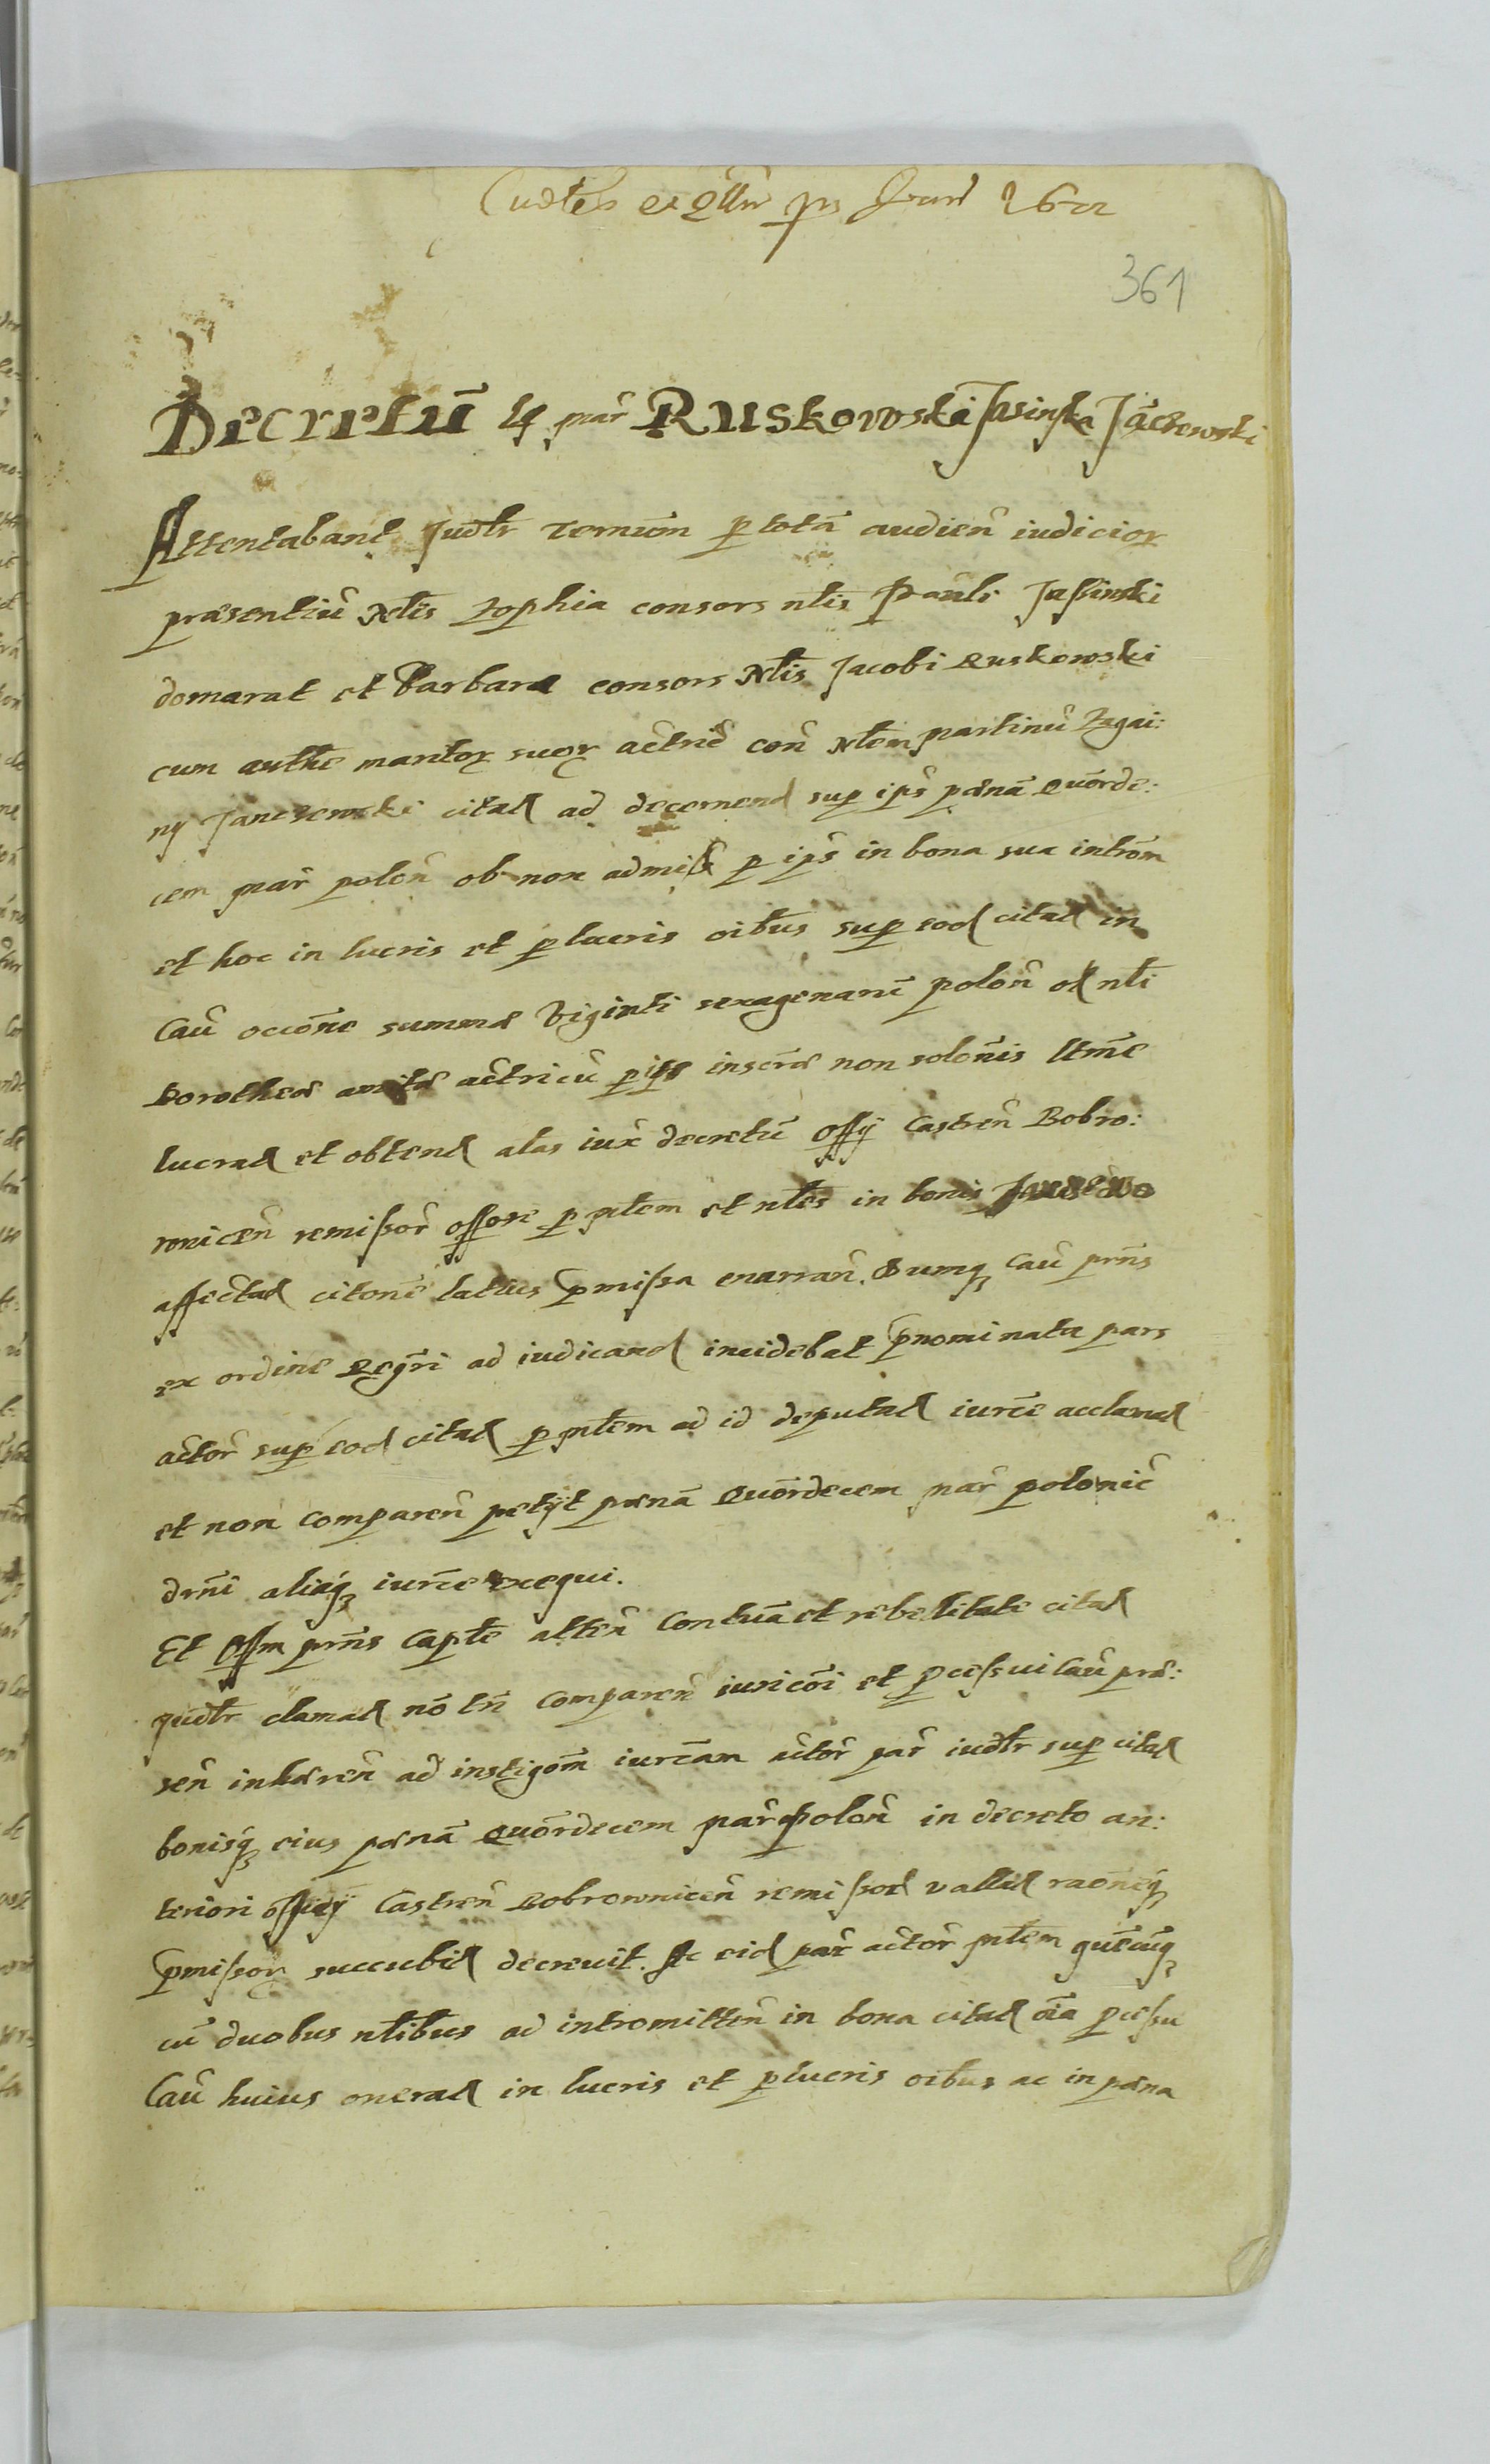 361
Decretū 14 mar̃ Ruskowski Jasinska Jãczewski
Attentabant Judtr Terminũ p totã audien̄ iudicior
præsentiũ Nlis Zophia consors nlis Pauli Jassinski
domarat et Barbara consors Nlis Jacobi Ruskowski
cum authē maritor suor actric̃ con̄ Nlem Martinũ Zagai:
ny Janczewski citat ad decernend sup ips pænã Quorde:
cem mar̃ polon̄ ob non admiss p ips in bona sua introm̄
et hoc in lucris et plucris oibus sup eod citat in
Caũ occõne summæ Viginti sexagenarũ polon̄ ol nli
Dorotheæ amitæ actricũ p ips inscræ non solõnis ltmẽ
lucrat et obtent alas iux decretũ Offÿ Castren̄ Bobro:
wnicen̄ remissor̃ offore p mlem et nles in bonis Janczewo
affectat citonẽ latius pmissa enarran̄. Dumq Caũ prñs
ex ordine Regri ad iudicand incidebat pnominata pars
actor̃ sup eod citat p mlem ad id deputat iurẽ acclamat
et non comparen̄ petÿt pænã Quordecem mar̃ polonic̃
drñi aliasq iurẽ exequi.
Et Offm prñs Captẽ atten̄ Contuã et rebelitate citat
judtr clamat nõ tñ comparen̄ iuricõi et pcessui Caũ præ:
sen̄ inhæren̄ ad instigom̃ iurc̃am actor̃ par̃ iudtr sup citat
bonisq eius pænã Quordecem mar̃ Polon̄ in decreto an:
teriori officÿ Castren̄ Bobrownicen̄ remissor vallat raõneq
pmissor succubit decrevit. Ac eid par̃ actor̃ mlem quẽcũq
cũ duobus nlibus ad intromitten̄ in bona citat oĩa pcessu
Caũ huius onerat in lucris et plucris oibus ac in pæna